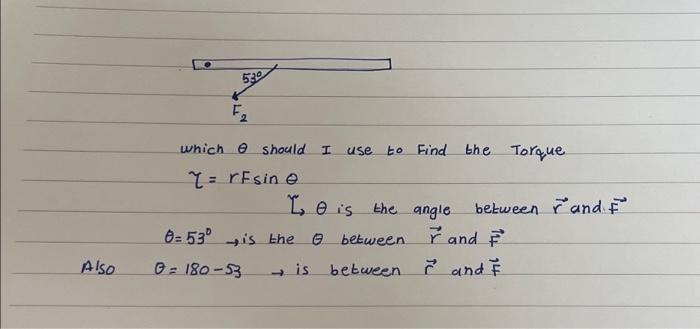 53°
F₂
which θ should I use to Find the Torque
τ = rF sin θ
↳ θ is the angle between r⃗ and F⃗
θ = 53° → is the θ between r⃗ and F⃗
Also θ = 180 - 53 → is between r⃗ and F⃗